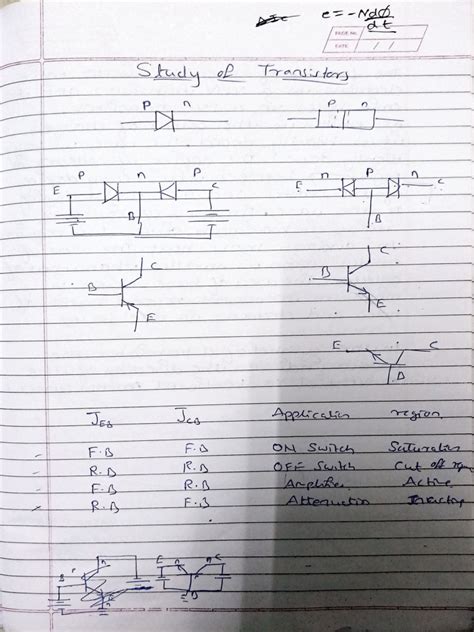 e = -Ndϕ
dt
PAGE No.
DATE / /
Study of Transistors
P n P n
P n P n P n
E C E C
B B
C C
B B
E E
E C
B
JEB JCB Application region
F.B F.B ON Switch Saturation
R.B R.B OFF Switch Cut off
F.B R.B Amplifier Active
R.B F.B Attenuation
E n n C
B